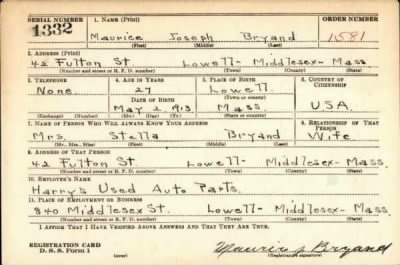 SERIAL NUMBER 1. NAME (Print) ORDER NUMBER
1332 Maurice Joseph Bryand 1581
(First) (Middle) (Last)
2. ADDRESS (Print)
42 Fulton St. Lowell- Middlesex- Mass.
(Number and street or R. F. D. number) (Town) (County) (State)
3. TELEPHONE 4. AGE IN YEARS 5. PLACE OF BIRTH 6. COUNTRY OF CITIZENSHIP
None. 27 Lowell.
DATE OF BIRTH (Town or county)
May 2, 1913 Mass. USA.
(Exchange) (Number) (Mo.) (Day) (Yr.) (State or country)
7. NAME OF PERSON WHO WILL ALWAYS KNOW YOUR ADDRESS 8. RELATIONSHIP OF THAT PERSON
Mrs. Stella Bryand Wife.
(Mr., Mrs., Miss) (First) (Middle) (Last)
9. ADDRESS OF THAT PERSON
42 Fulton St. Lowell- Middlesex- Mass.
(Number and street or R. F. D. number) (Town) (County) (State)
10. EMPLOYER'S NAME
Harry's Used Auto Parts.
11. PLACE OF EMPLOYMENT OR BUSINESS
840 Middlesex St. Lowell- Middlesex- Mass.
(Number and street or R. F. D. number) (Town) (County) (State)
I AFFIRM THAT I HAVE VERIFIED ABOVE ANSWERS AND THAT THEY ARE TRUE.
REGISTRATION CARD
D. S. S. Form 1 (over) Maurice J Bryand
(Registrant's signature)